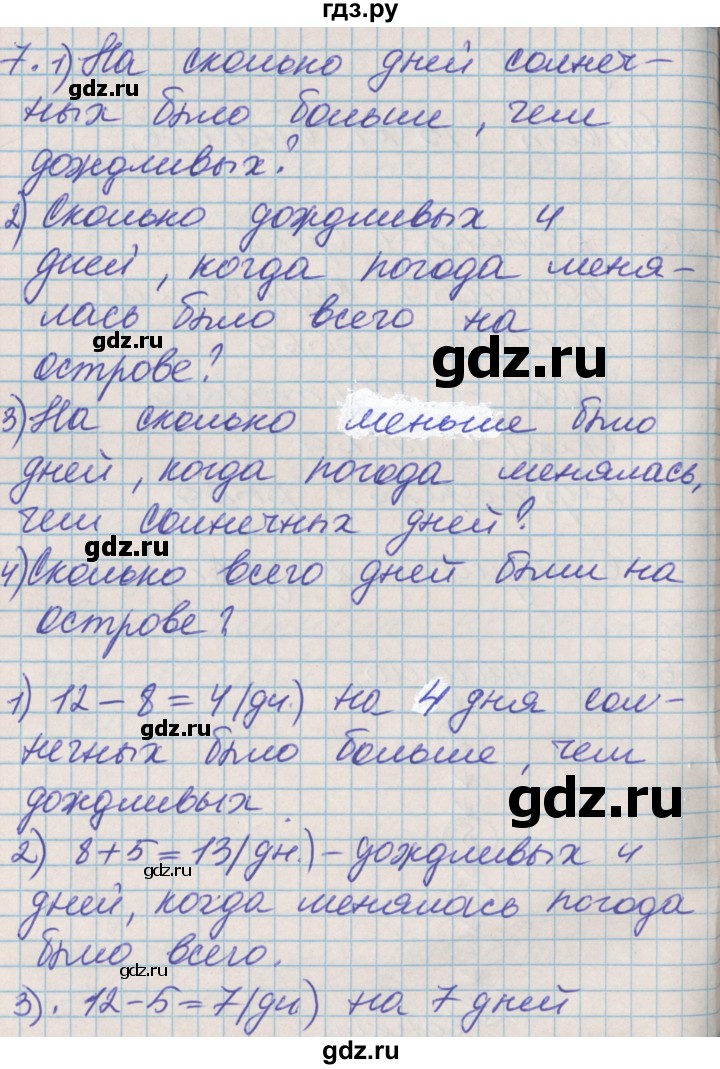 гдз.ру
7. 1) На сколько дней солнеч-
gdz.ru
ных было больше, чем
дождливых?
2) Сколько дождливых и
дней, когда погода меня-
лась было всего на
gdz.ru
gdz.ru
острове?
3) На сколько меньше было
дней, когда погода менялась,
чем солнечных дней?
gdz.ru
4) Сколько всего дней были на
острове?
gdz.ru
1) 12 - 8 = 4 (дн.) на 4 дня сол-
нечных было больше, чем
gdz.ru
gdz.ru
дождливых.
2) 8 + 5 = 13 (дн.) - дождливых и
gdz.ru
дней, когда менялась погода
было всего.
gdz.ru
3). 12 - 5 = 7 (дн) на 7 дней
gdz.ru
gdz.ru